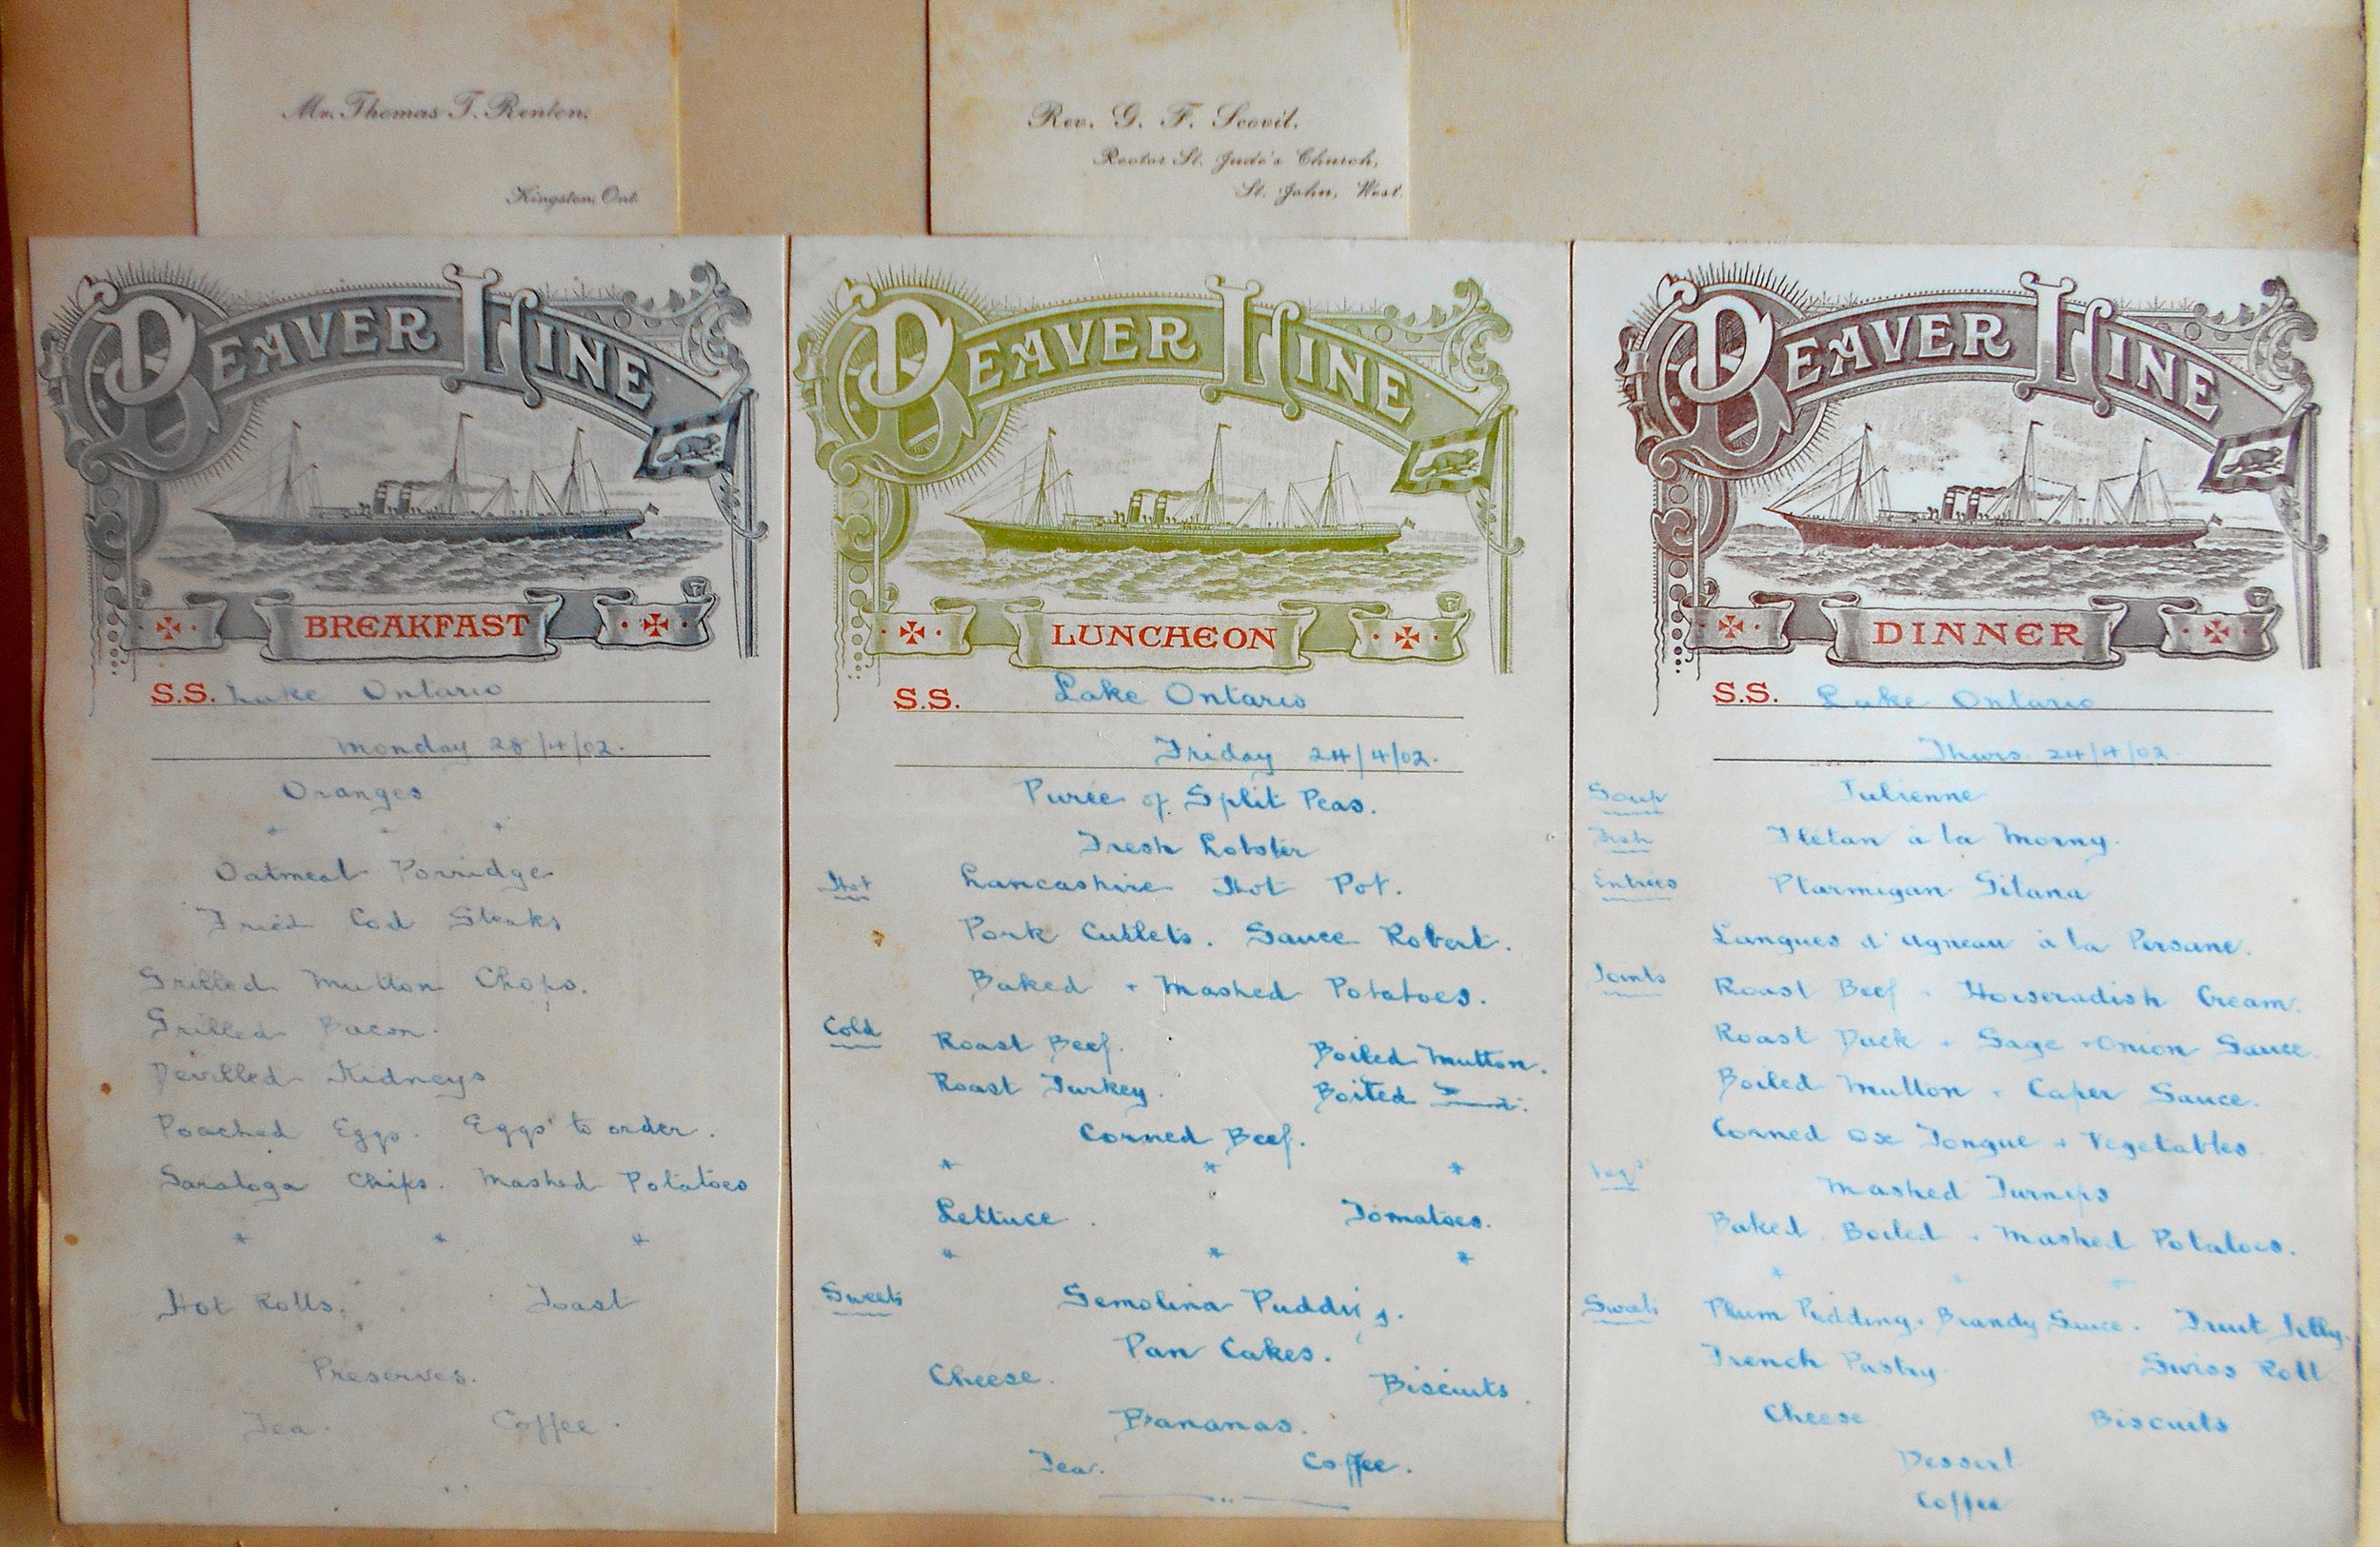 Mr. Thomas T. Renton.
Kingston, Ont.
Rev. G. F. Scovil.
Rector St. Jude's Church,
St. John, West.
BEAVER LINE
BREAKFAST
S.S. Lake Ontario
Monday 28/4/02.
Oranges
Oatmeal Porridge
Fried Cod Steaks
Grilled Mutton Chops.
Grilled Bacon.
Devilled Kidneys
Poached Eggs. Eggs to order.
Saratoga Chips. Mashed Potatoes
Hot Rolls. Toast
Preserves.
Tea. Coffee.
BEAVER LINE
LUNCHEON
S.S. Lake Ontario
Friday 24/4/02.
Puree of Split Peas.
Fresh Lobster
Hot Lancashire Hot Pot.
Pork Cutlets. Sauce Robert.
Baked + Mashed Potatoes.
Cold Roast Beef. Boiled Mutton.
Roast Turkey. Boiled
Corned Beef.
* * *
Lettuce. Tomatoes.
* * *
Sweets Semolina Pudding.
Pan Cakes.
Cheese. Biscuits.
Bananas.
Tea. Coffee.
BEAVER LINE
DINNER
S.S. Lake Ontario
Thurs. 24/4/02
Soup Julienne
Fish Flétan à la Morny.
Entrees Ptarmigan Gitana
Langues d'agneau à la Persane.
Joints Roast Beef - Horseradish Cream.
Roast Duck - Sage + Onion Sauce.
Boiled Mutton - Caper Sauce.
Corned Ox Tongue + Vegetables
Vegs Mashed Turnips
Baked, Boiled + Mashed Potatoes.
Sweets Plum Pudding - Brandy Sauce. Fruit Jelly.
French Pastry Swiss Roll
Cheese Biscuits
Dessert
Coffee